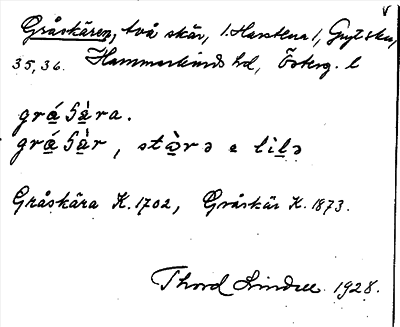 Gråskären, två skär, 1. Harstena 1, Gryts sn,
35, 36. Hammarkinds hd, Österg. l
grǻʃà̱ra.
grǻʃà̱r, stò̱rə a lilə
Gråskära K. 1702, Gråskär K. 1873.
Thord Lindell 1928.